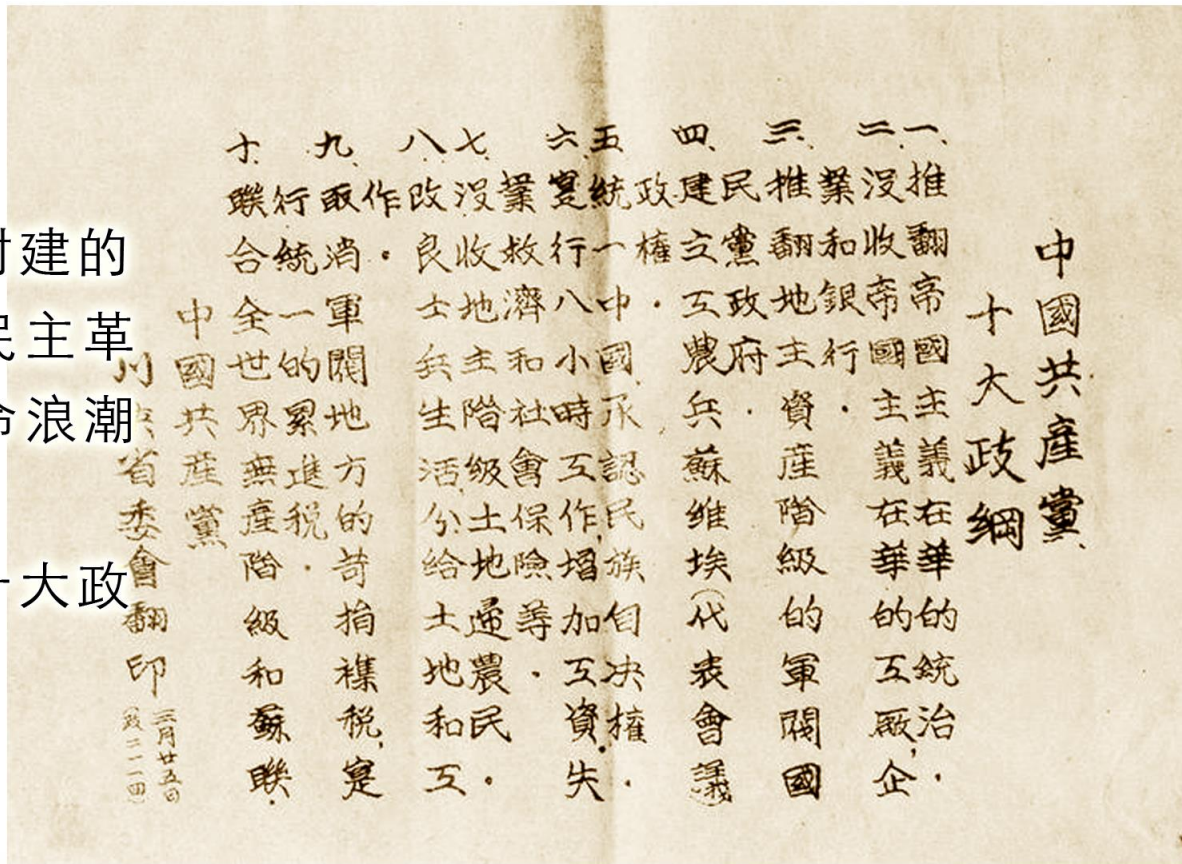 中國共産黨
十大政綱
一、推翻帝國主義在華的統治．
二、没收帝國主義在華的工廠，企
業和銀行．
三、推翻地主資産階級的軍閥國
民黨政府．
四、建立工農兵蘇維埃（代表會議）
政權．
五、統一中國，承認民族自决權．
六、寔行八小時工作，增加工資，失
業救濟和社會保險等．
七、没收地主階級土地農民。
八、改良士兵生活，分給土地和工
作．
九、取消軍閥地方的苛捐襍税，寔
行統一的累進税．
十、聯合全世界無産階級和蘇聯．
中國共産黨
川省委會翻印
三月廿五日
建的
民主革
命浪潮
大政